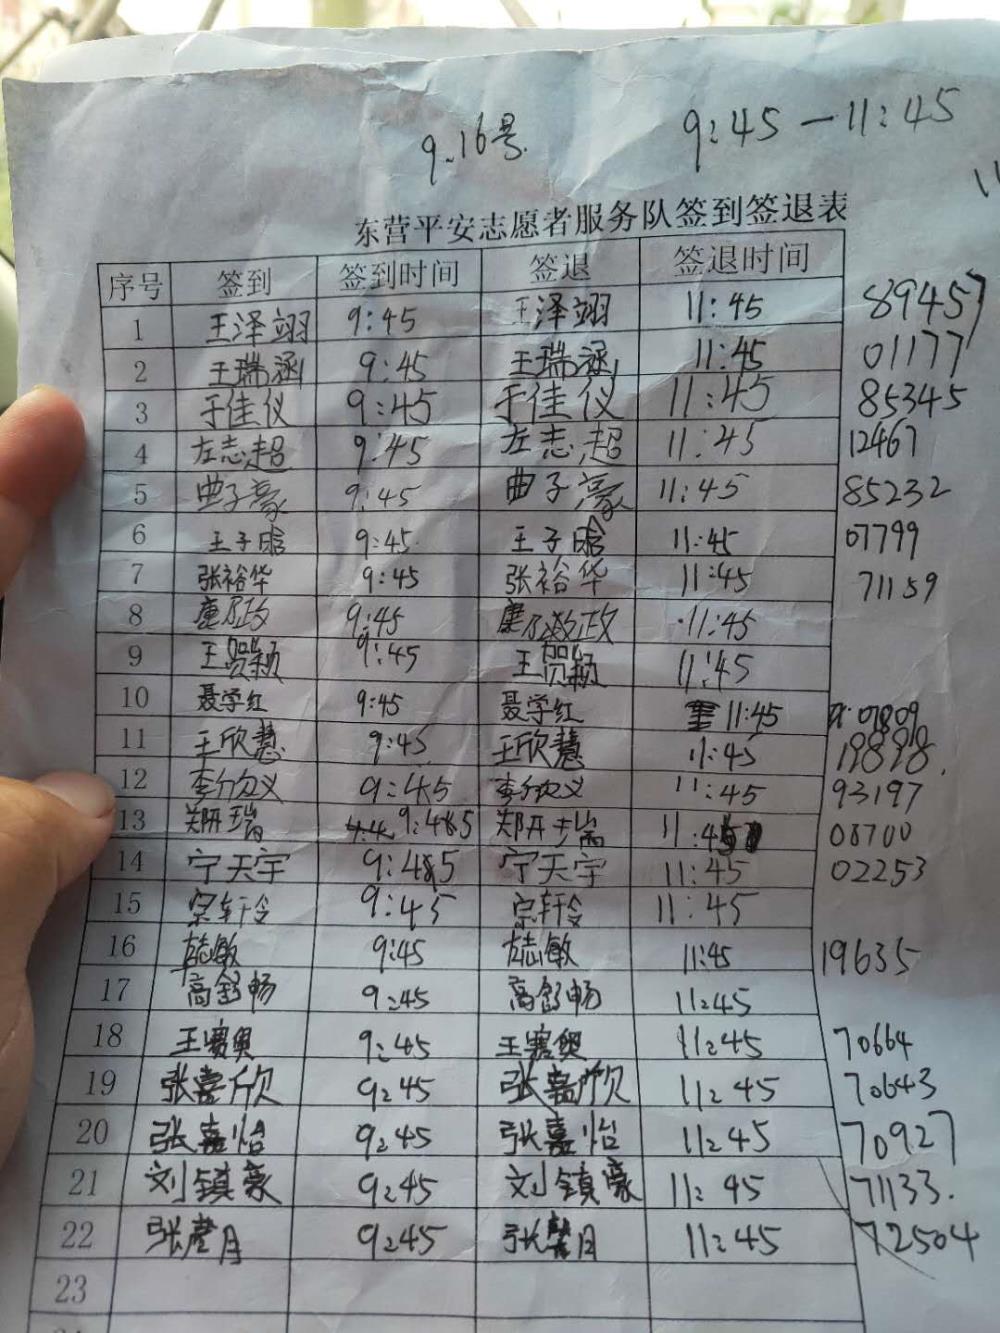 9.16号 9:45—11:45
11
东营平安志愿者服务队签到签退表
序号 签到 签到时间 签退 签退时间
1 王泽翊 9:45 王泽翊 11:45 89457
2 王瑞涵 9:45 王瑞涵 11:45 01177
3 于佳仪 9:45 于佳仪 11:45 85345
4 左志超 9:45 左志超 11:45 12467
5 曲子豪 9:45 曲子豪 11:45 85232
6 王子晗 9:45 王子晗 11:45 07799
7 张裕华 9:45 张裕华 11:45 71159
8 9:45 11:45
9 王贺颖 9:45 王贺颖 11:45
10 聂学红 9:45 聂学红 11:45 07809
11 王欣慧 9:45 王欣慧 11:45 19898.
12 9:45 11:45 93197
13 郑研瑞 9:45 郑研瑞 11:45 08700
14 宁天宇 9:45 宁天宇 11:45 02253
15 宗轩令 9:45 宗轩令 11:45
16 9:45 11:45 19635
17 高舒畅 9:45 高舒畅 11:45
18 王赛奥 9:45 王赛奥 11:45 70664
19 张嘉欣 9:45 张嘉欣 11:45 70643
20 张嘉怡 9:45 张嘉怡 11:45 70927
21 刘镇豪 9:45 刘镇豪 11:45 71133.
22 9:45 11:45 72504
23